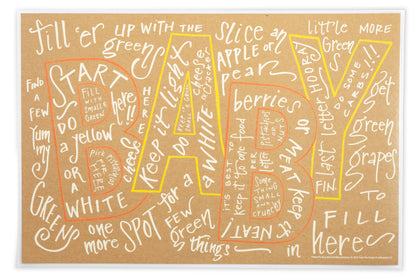 fill 'er
up with the
greens
slice an
apple or
pear
little more
Green
START
HERE!!
FILL
WITH SMALL
GREEN
DO
a yellow
OR
A
WHITE
cheese
FIND
A
FEW
Yummy
GREENS
one more SPOT
for a
FEW
Green
things
Keep it light
HERE
DO
& WHITE
cheese
or cracker
berries
or MEAT
keep it
NEAT!
IT'S BEST TO
keep it to one food
PER
letter
SOMETHING
SMALL
and
CRUNCHY
last letter HOORAY
DO SOME
CARBS!!!
FIN
get
green
grapes
TO
FILL
in
here